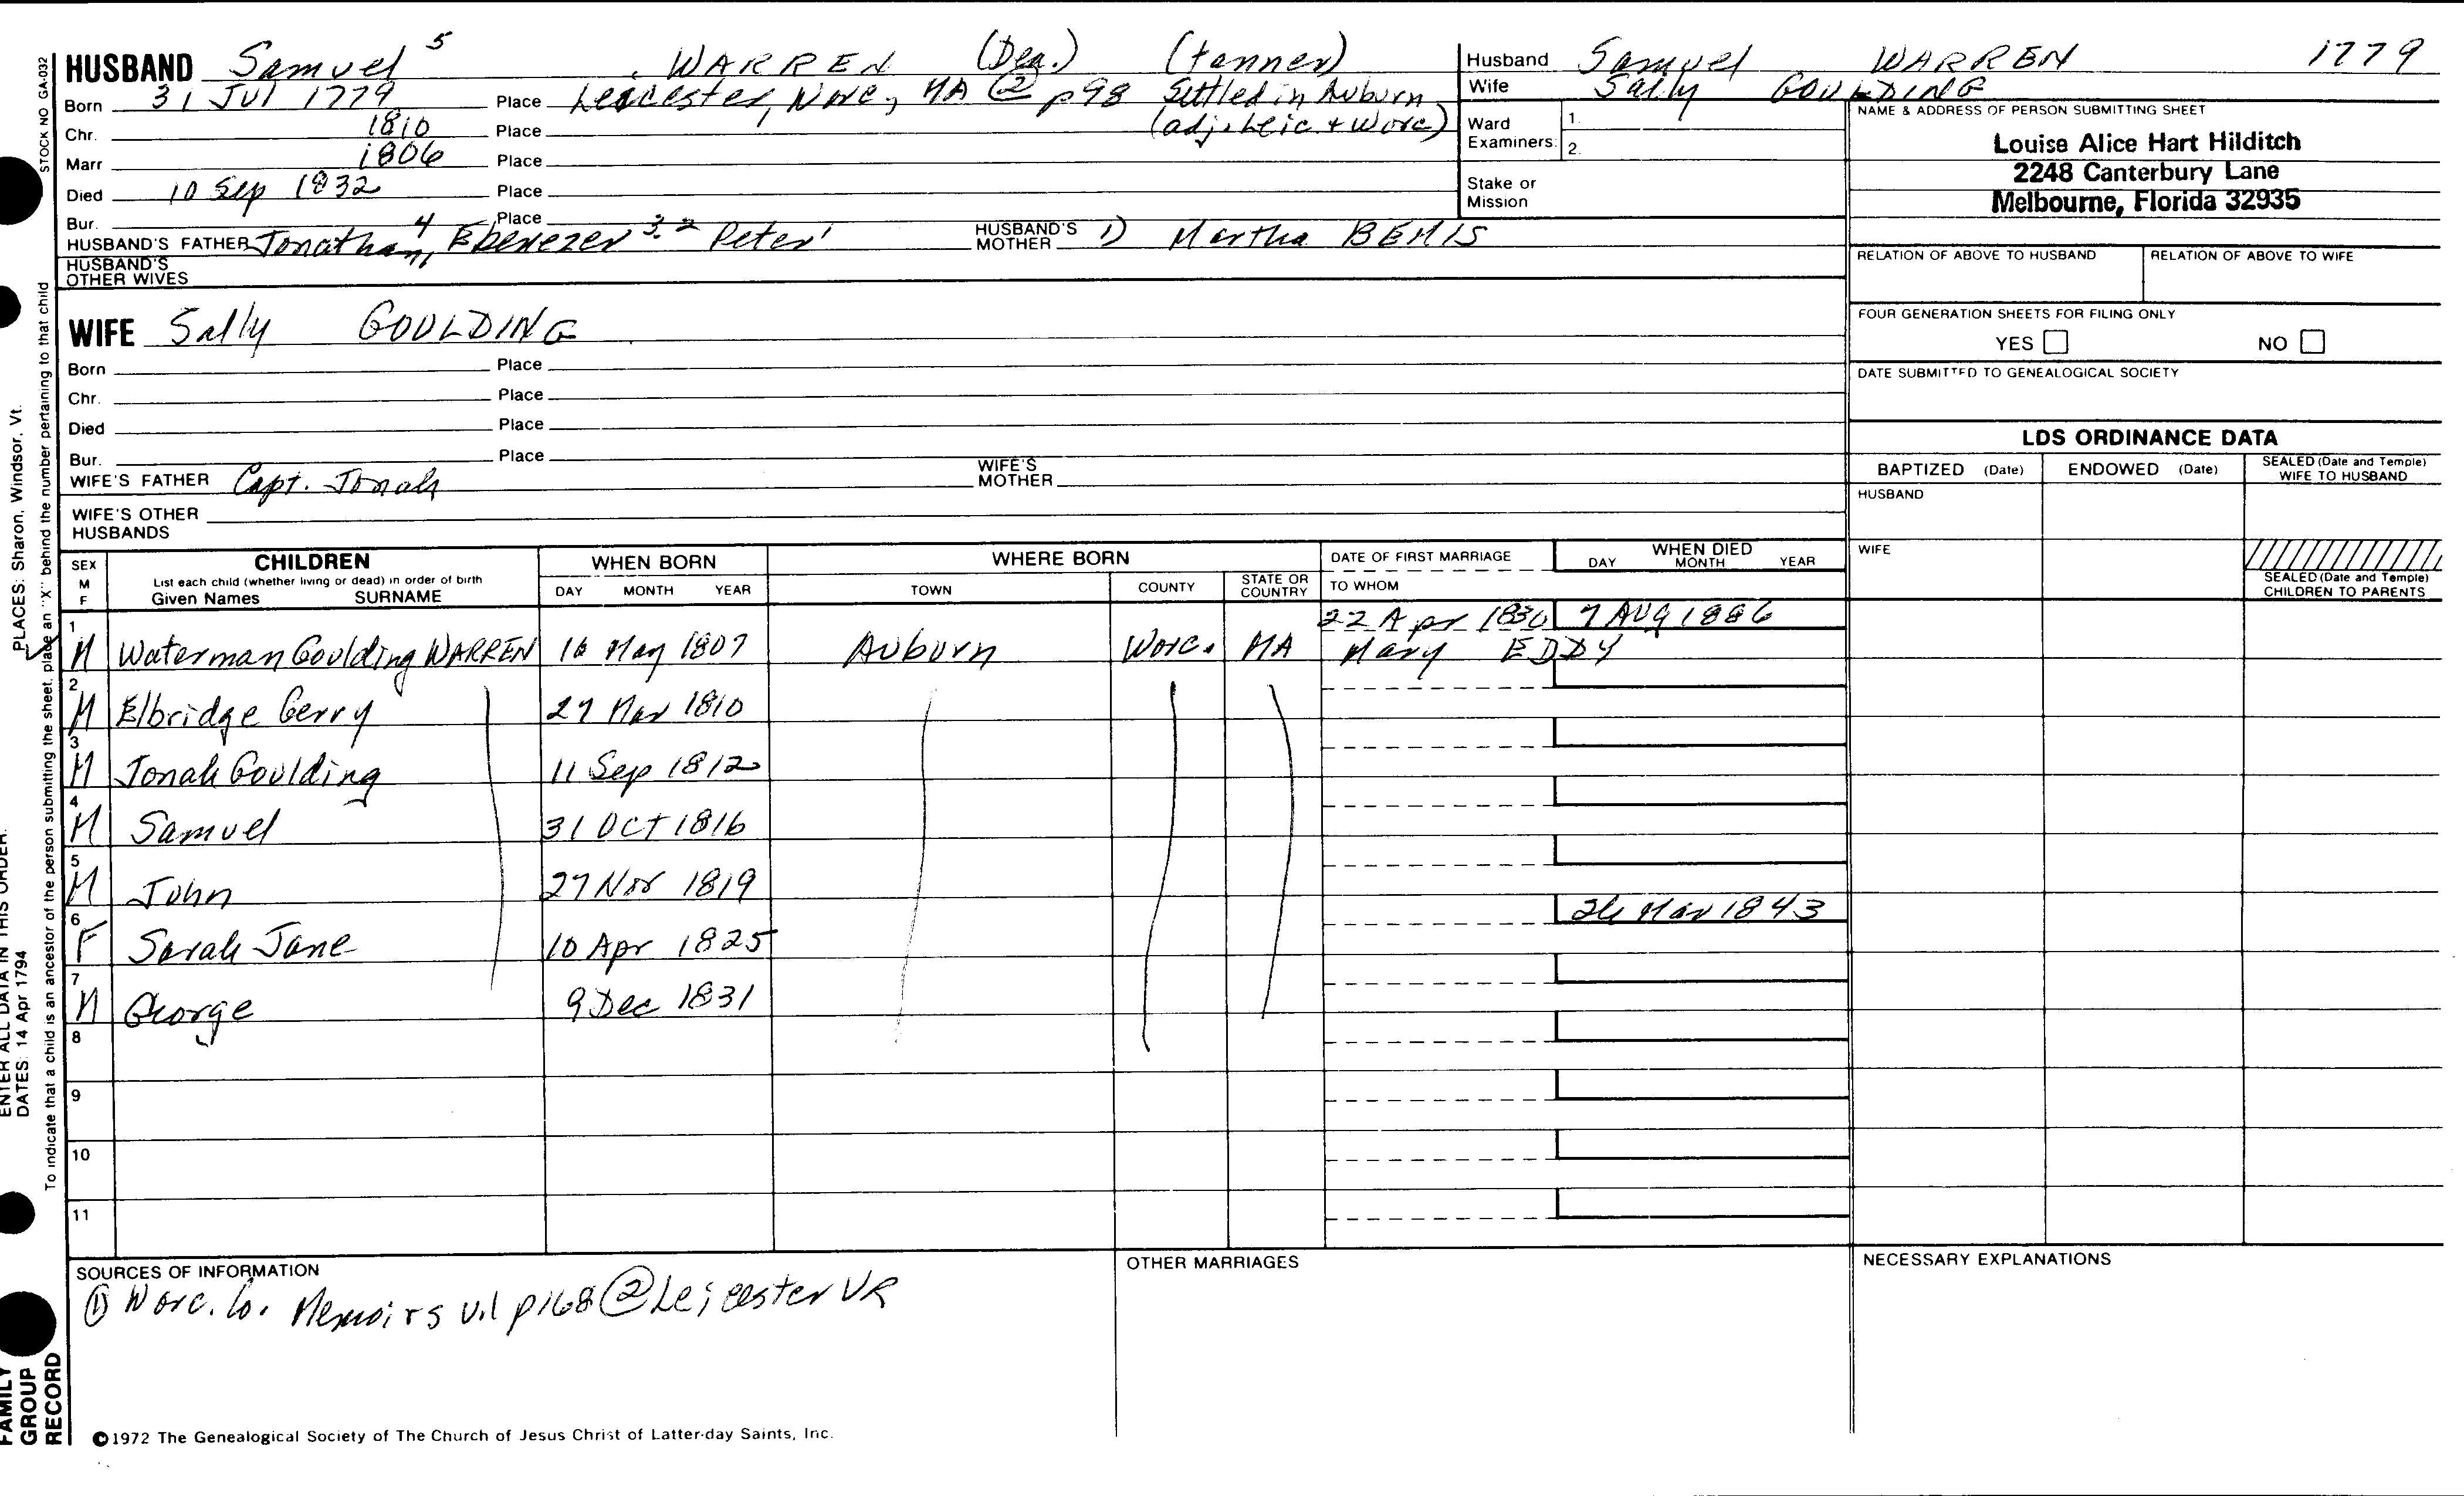 HUSBAND Samuel 5 WARREN (Dea.) (tanner)
Born 31 Jul 1779 Place Leicester, Worc, MA @2 p98 Settled in Auburn
Chr. 1810 Place (adj. Leic. + Worc)
Marr 1806 Place
Died 10 Sep 1832 Place
Bur. Place
HUSBAND'S FATHER Jonathan, 4 Ebenezer 3.2 Peter 1 HUSBAND'S MOTHER 1) Martha BEMIS
HUSBAND'S OTHER WIVES
WIFE Sally GOULDING
Born Place
Chr. Place
Died Place
Bur. Place
WIFE'S FATHER Capt. Jonah WIFE'S MOTHER
WIFE'S OTHER HUSBANDS
Husband Samuel WARREN 1779
Wife Sally GOULDING
Ward Examiners: 1. 2.
Stake or Mission
NAME & ADDRESS OF PERSON SUBMITTING SHEET
Louise Alice Hart Hilditch
2248 Canterbury Lane
Melbourne, Florida 32935
RELATION OF ABOVE TO HUSBAND RELATION OF ABOVE TO WIFE
FOUR GENERATION SHEETS FOR FILING ONLY
YES NO
DATE SUBMITTED TO GENEALOGICAL SOCIETY
LDS ORDINANCE DATA
BAPTIZED (Date) ENDOWED (Date) SEALED (Date and Temple) WIFE TO HUSBAND
HUSBAND
WIFE
SEALED (Date and Temple) CHILDREN TO PARENTS
SEX M F
CHILDREN
List each child (whether living or dead) in order of birth
Given Names SURNAME
WHEN BORN
DAY MONTH YEAR
WHERE BORN
TOWN COUNTY STATE OR COUNTRY
DATE OF FIRST MARRIAGE
TO WHOM
WHEN DIED
DAY MONTH YEAR
22 Apr 1830 7 AUG 1886
1 M Waterman Goulding WARREN 16 May 1807 Auburn Worc. MA Mary EDDY
2 M Elbridge Gerry 27 Mar 1810
3 M Jonah Goulding 11 Sep 1812
4 M Samuel 31 OCT 1816
5 M John 27 Nov 1819
6 F Sarah Jane 10 Apr 1825 26 Mar 1843
7 M George 9 Dec 1831
8
9
10
11
SOURCES OF INFORMATION
① Worc. Co. Memoirs v.1 p168 ② Leicester VR
OTHER MARRIAGES
NECESSARY EXPLANATIONS
©1972 The Genealogical Society of The Church of Jesus Christ of Latter-day Saints, Inc.
STOCK NO GA-032
To indicate that a child is an ancestor of the person submitting the sheet, place an "X" behind the number pertaining to that child
PLACES: Sharon, Windsor, Vt.
ENTER ALL DATA IN THIS ORDER:
DATES: 14 Apr 1794
FAMILY GROUP RECORD